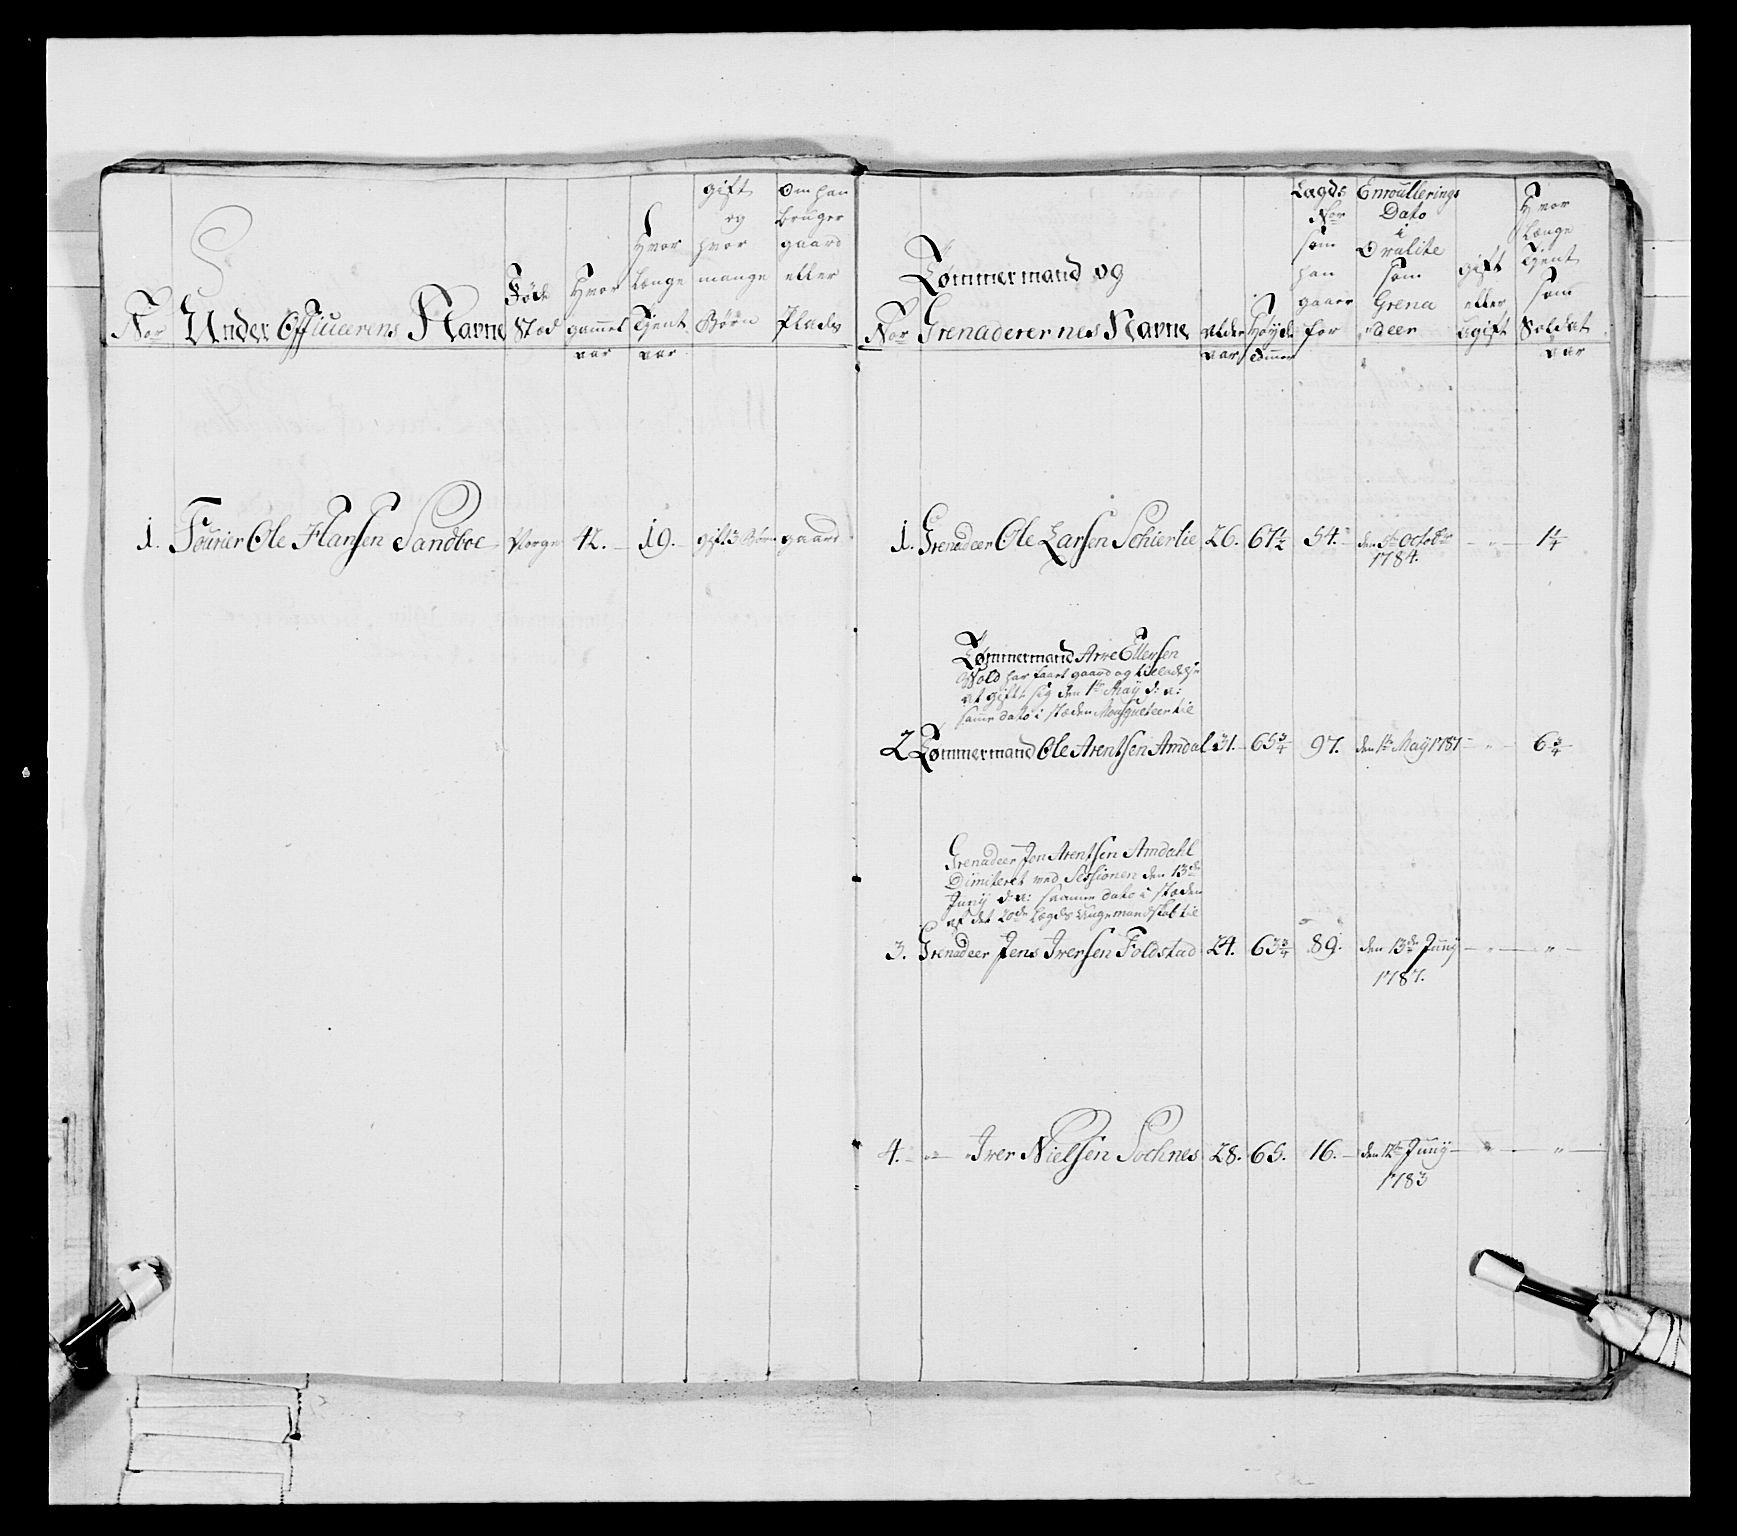 Nor
Under Officerens Navne
Føde
Stæd
Hvor
gammel
aar
Hvor
længe
Tjent
aar
gift
og
hvor
mange
Børn
Om han
bruger
gaard
eller
Plads
1. Fourier Ole Hansen Sandboe Norge 42. 19. gift 3 Børn gaard
Nor
Tømmermand og
Grenaderernes Navne
alder
aar
Høyde
Tommer
Lægds
Nor
som
han
gaaer
for
Enroullerings
Dato
i
Qvalite
som
Grena
deer
gift
eller
Ugift
Hvor
længe
Tjent
som
Soldat
aar
1. Grenadeer Ole Larsen Schierlie 26. 67½ 54. den 5te Octobr
1784. " 1¼
Tømmermand Arve Ellersen
Wold har faaet gaard og tilladelse
at gifte sig den 1te May d: a:
samme dato i stæden Mousqueteer til
2 Tømmermand Ole Arentsen Amdal 31. 65¾ 97. den 1te May 1787 " 6¾
Grenadeer Jon Arentsen Amdahl
Dimiteret ved Sessionen den 13de
Junÿ d: a: samme dato i stæden
af det 20de Lægds Unge mandskab til
3. Grenadeer Jens Iversen Foldstad 24. 63¾ 89. den 13de Junÿ
1787. " "
4. " Iver Nielsen Sochnes 28. 65. 16. den 12te Junÿ
1783 " "